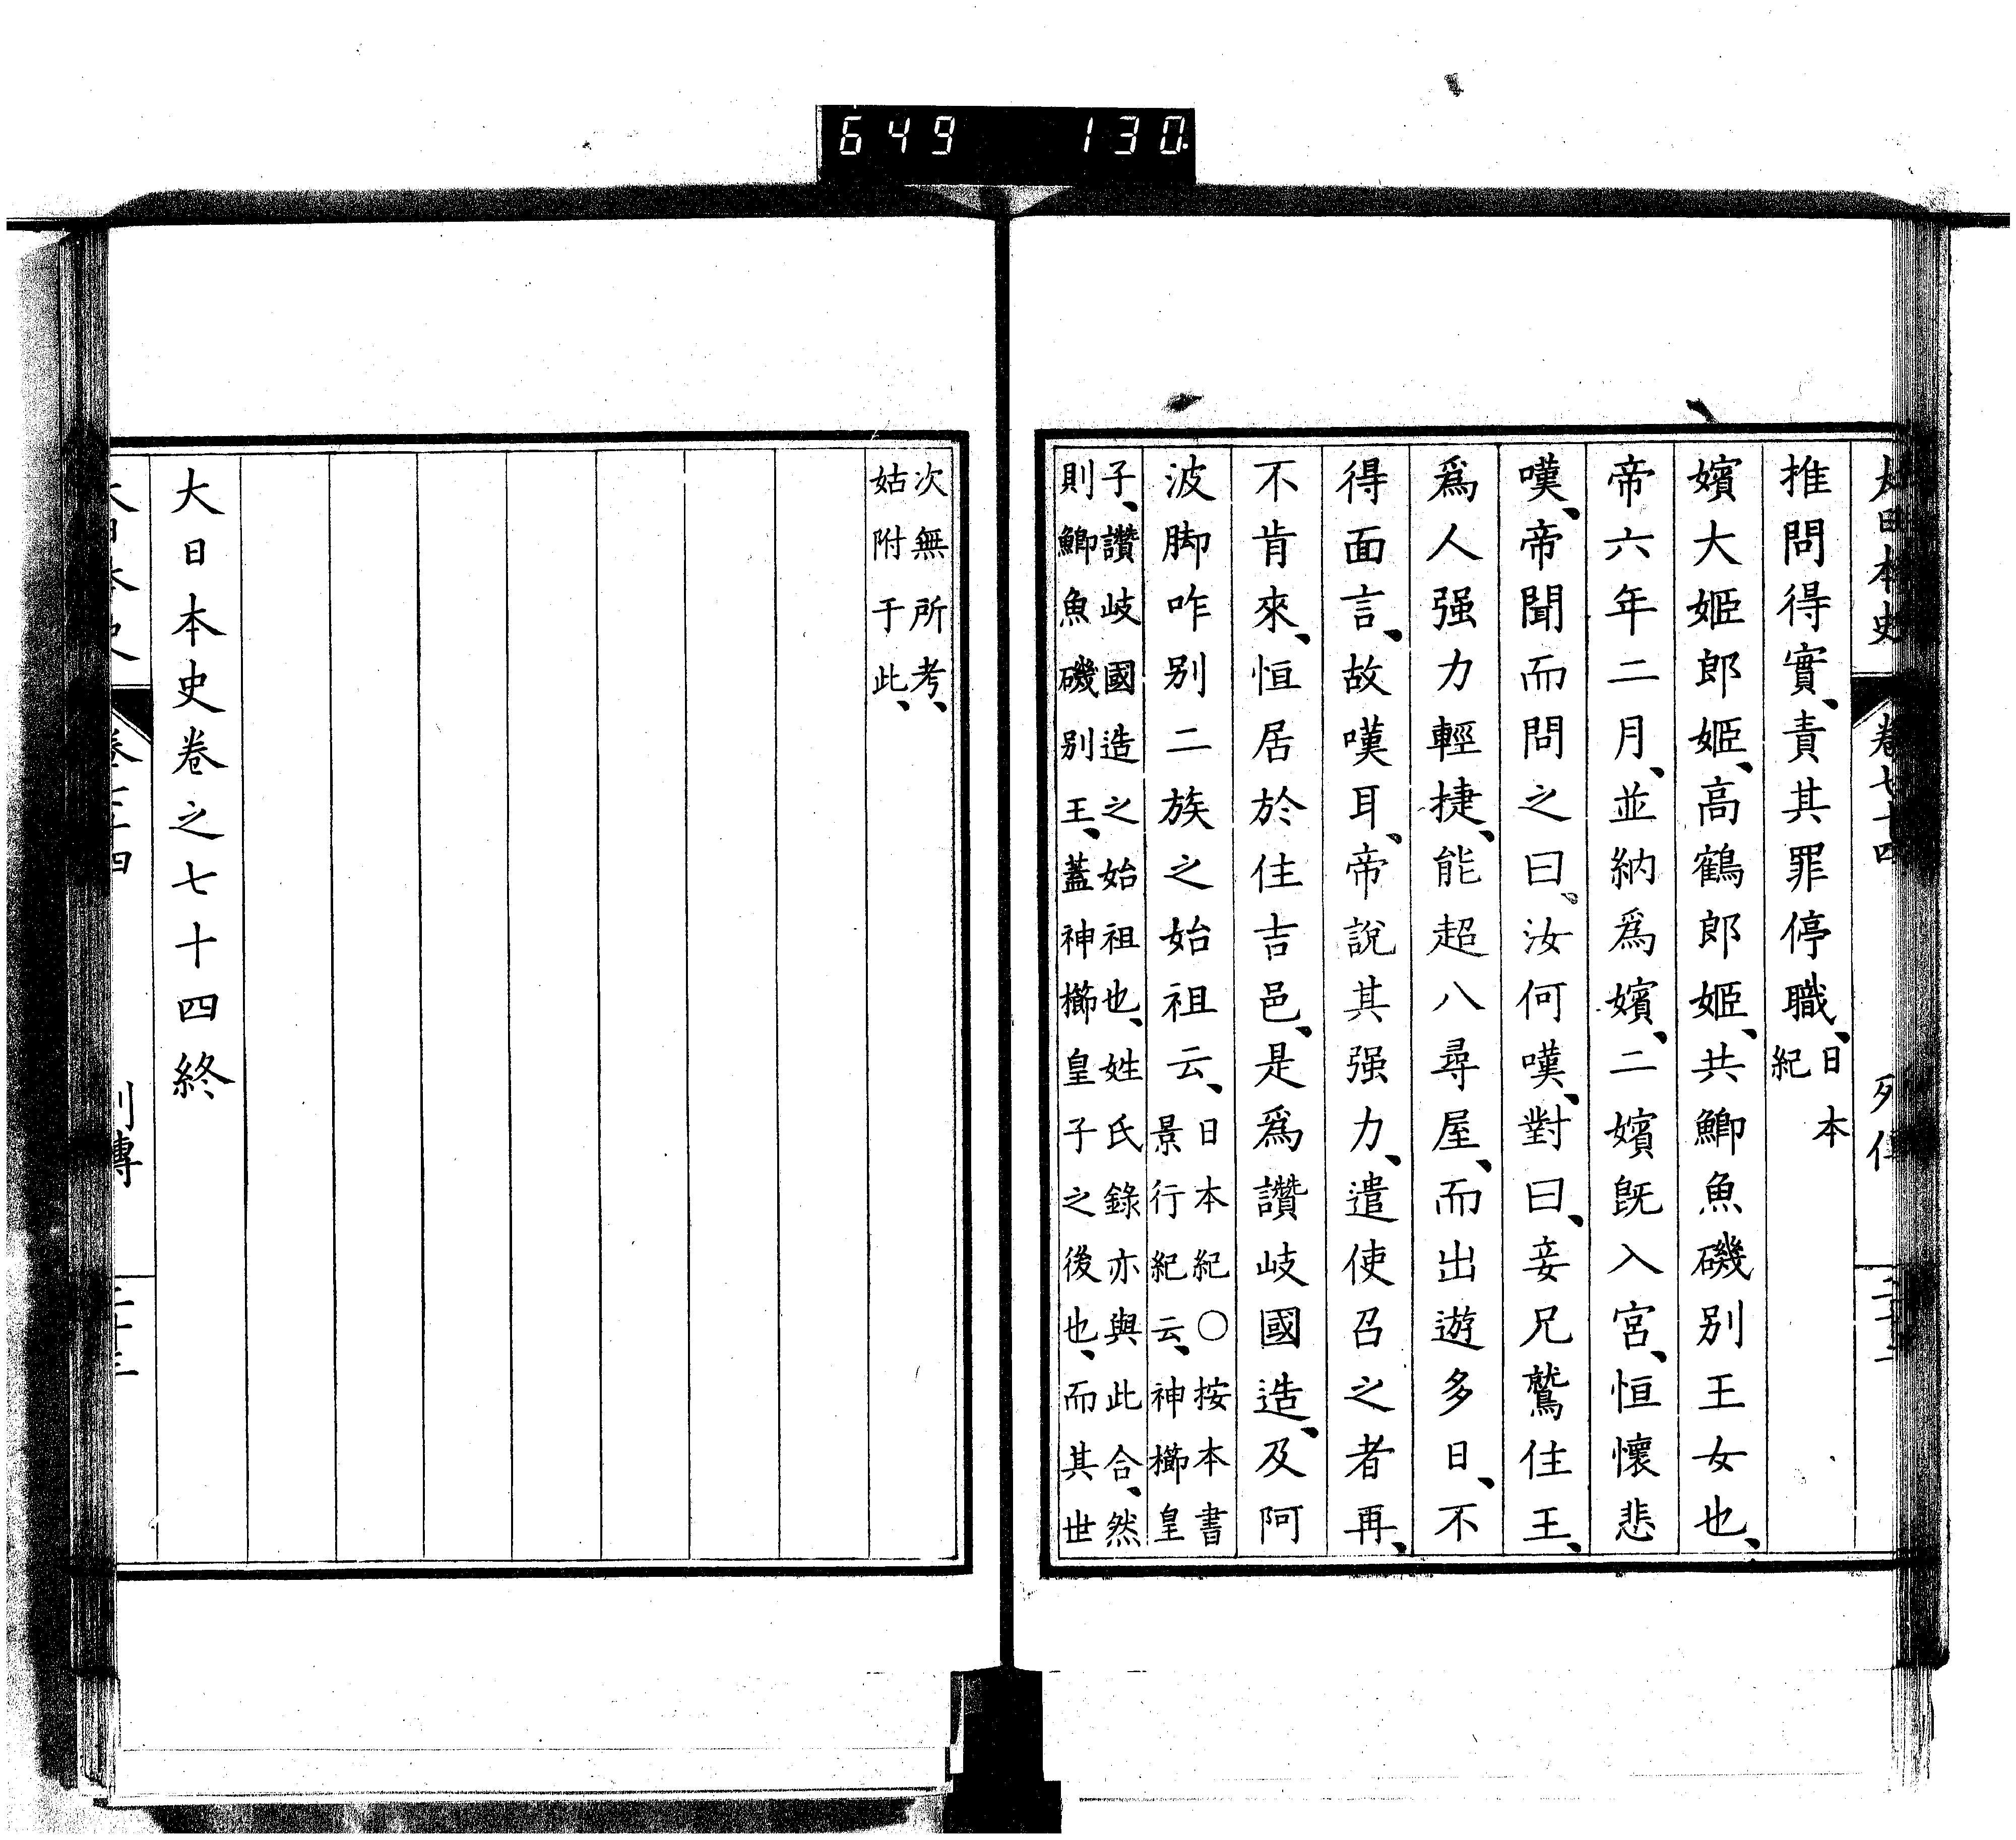 649 130
大日本史 卷七十四 列傳
推問得實、責其罪停職、日本紀
嬪大姬郎姬、高鶴郎姬、共鯽魚磯別王女也、
帝六年二月、並納爲嬪、二嬪既入宮、恒懷悲
嘆、帝聞而問之曰、汝何嘆、對曰、妾兄鷲住王、
爲人强力輕捷、能超八尋屋、而出遊多日、不
得面言、故嘆耳、帝說其强力、遣使召之者再、
不肯來、恒居於住吉邑、是爲讚岐國造、及阿
波脚咋別二族之始祖云、日本紀○按本書景行紀云、神櫛皇
子、讚岐國造之始祖也、姓氏錄亦與此合、然
則鯽魚磯別王、蓋神櫛皇子之後也、而其世
次無所考、
姑附于此、
大日本史卷之七十四終